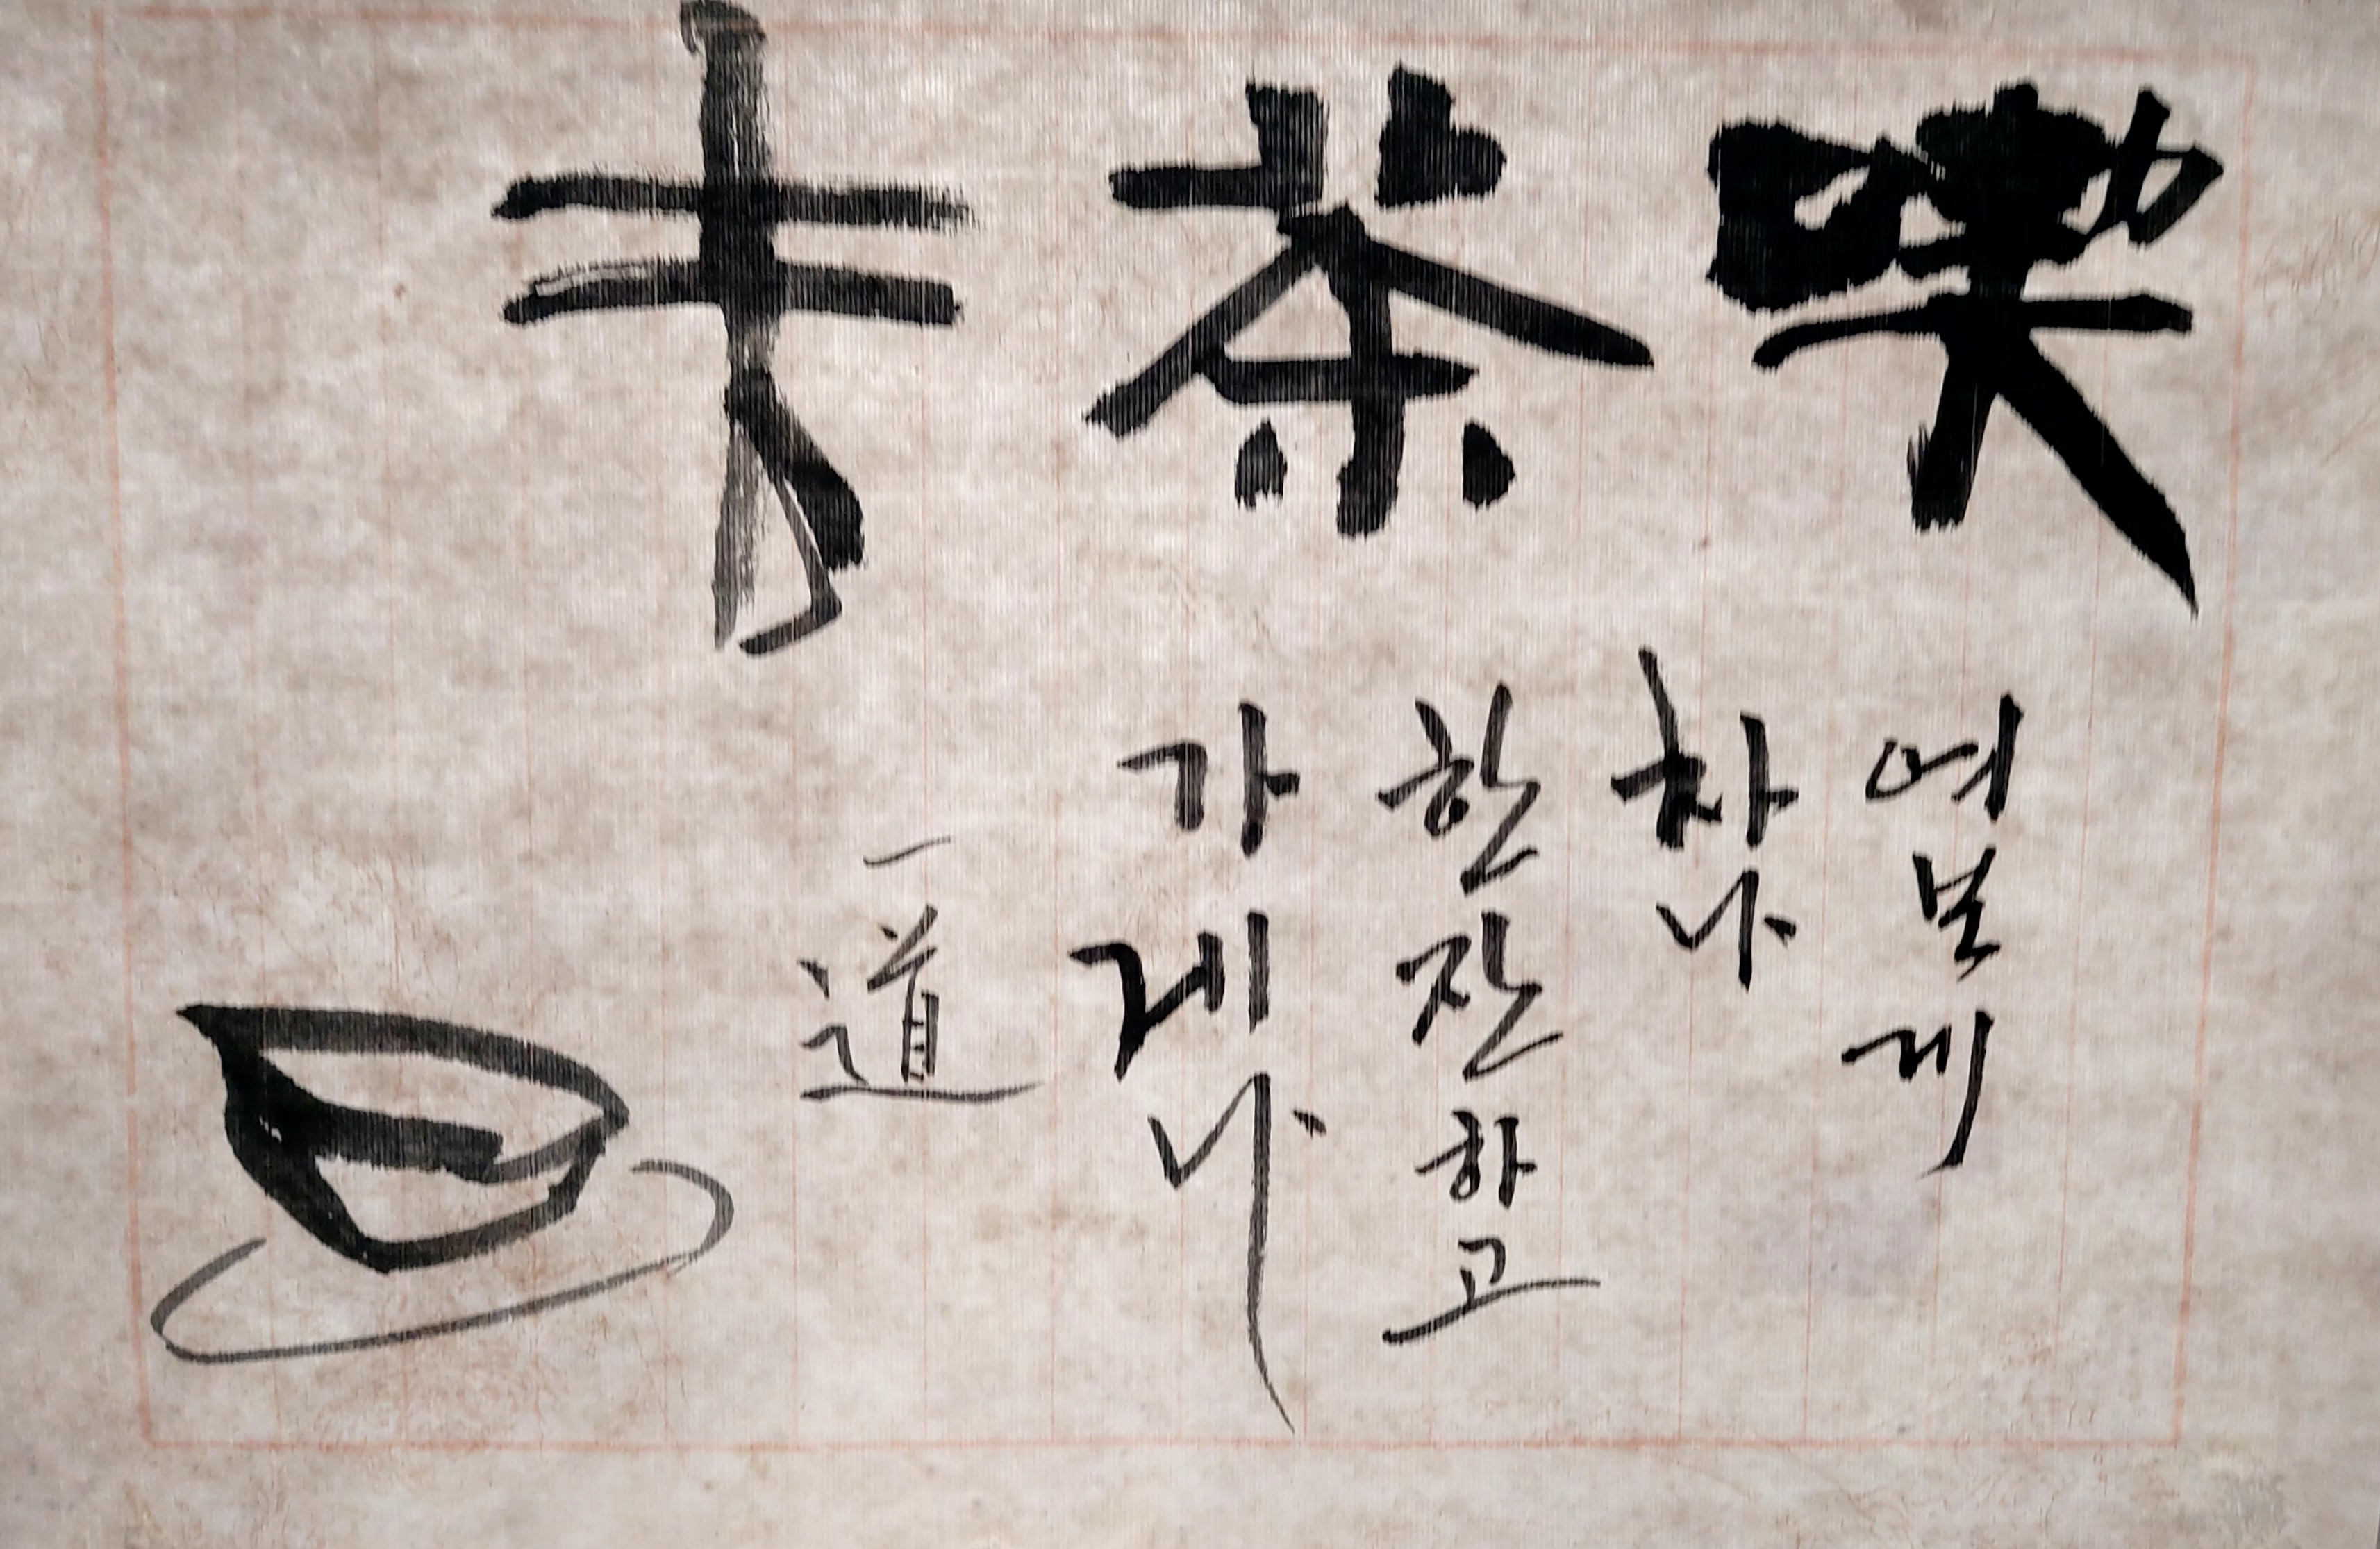 喫茶去
여보게
차나
한잔하고
가게나
一道